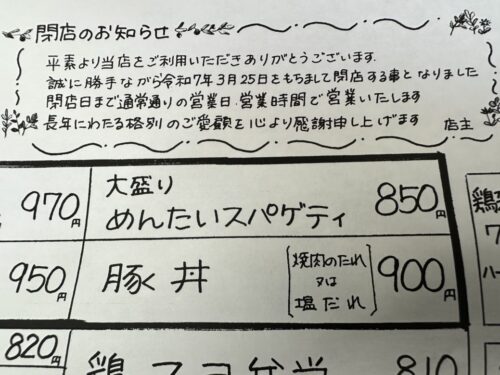 閉店のお知らせ
平素より当店をご利用いただきありがとうございます.
誠に勝手ながら令和7年3月25日をもちまして閉店する事となりました
閉店日まで通常通りの営業日.営業時間で営業いたします
長年にわたる格別のご愛顧を心より感謝申し上げます 店主
970円
大盛り
めんたいスパゲティ 850円
950円
豚丼 焼肉のたれ 又は 塩だれ 900円
820円
810